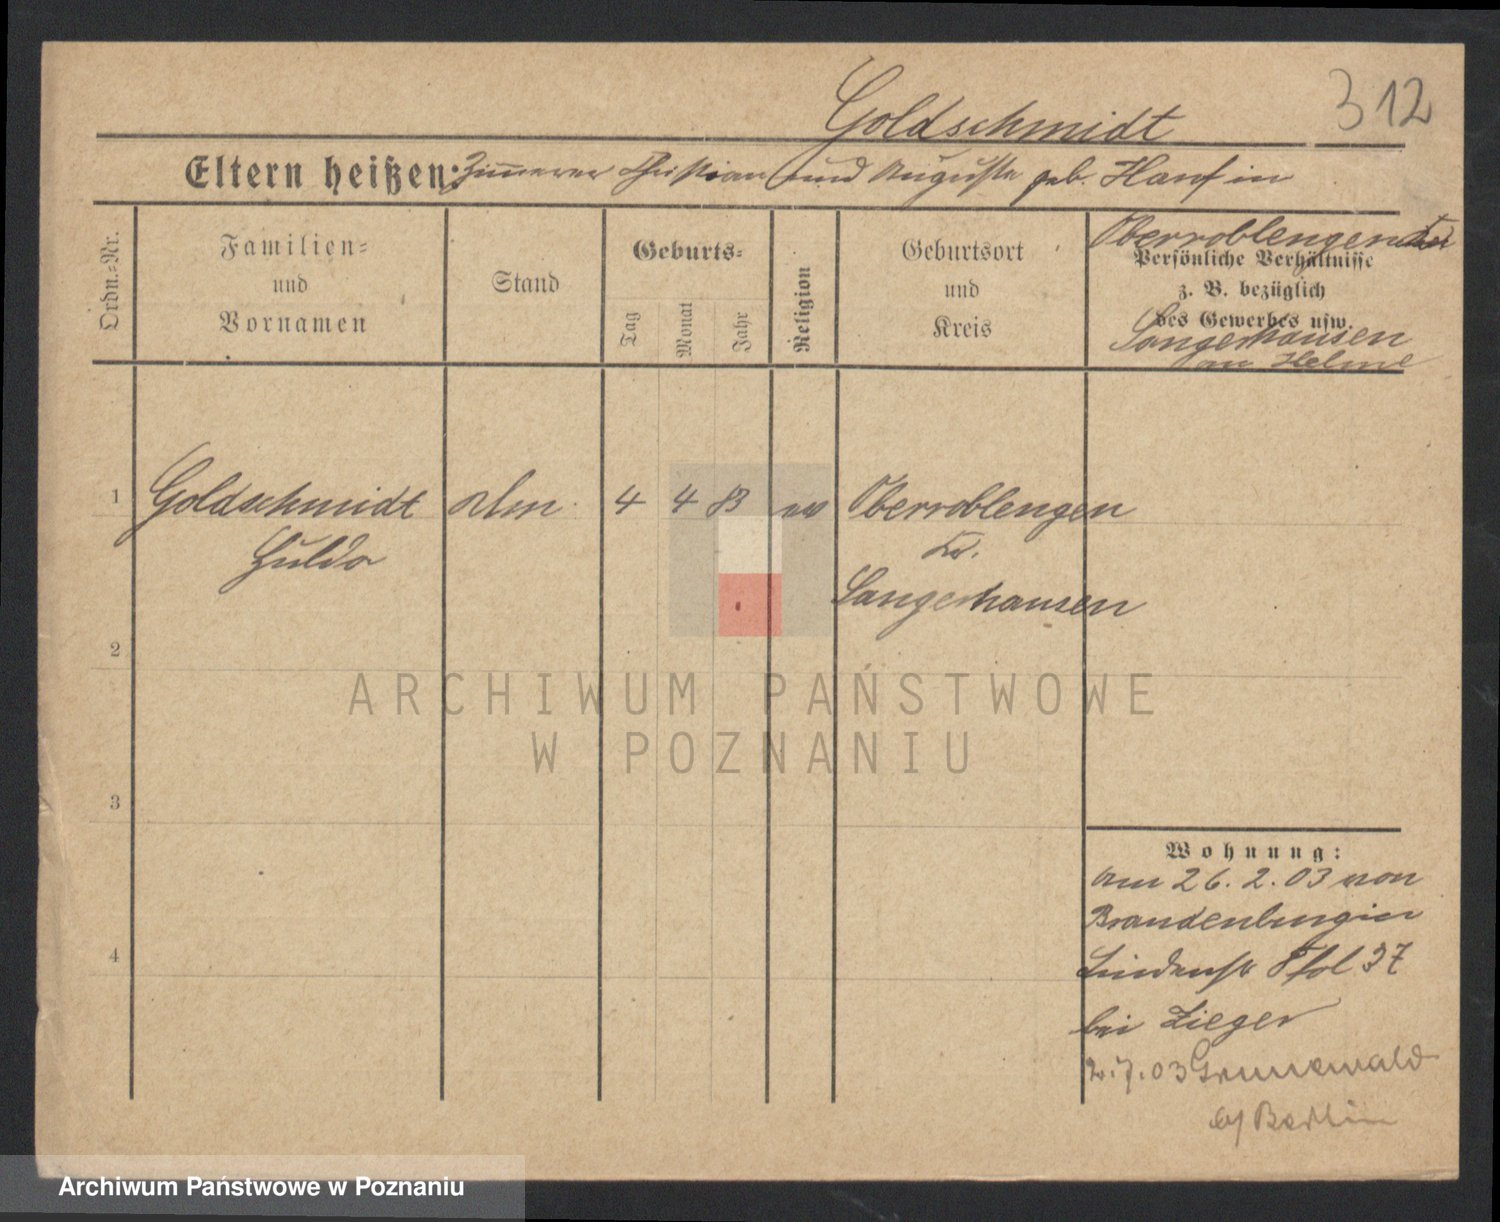 Goldschmidt
312
Eltern heißen: Zimmerer Christian und Auguste geb. Hanf in
Oberroblengen Kr.
Sangerhausen
an Helme
Ordn.=Nr.
Familien=
und
Vornamen
Stand
Geburts=
Tag
Monat
Jahr
Religion
Geburtsort
und
Kreis
Persönliche Verhältnisse
z. B. bezüglich
des Gewerbes usw.
1
Goldschmidt
Hulda
4
4
83
ev
Oberroblengen
Kr.
Sangerhausen
2
3
4
Wohnung:
am 26. 2. 03 von
Brandenburg in
Lindenstr 8 fol 37
bei Zieger
2. 7. 03 Grunewald
b/ Berlin
ARCHIWUM PAŃSTWOWE
W POZNANIU
Archiwum Państwowe w Poznaniu